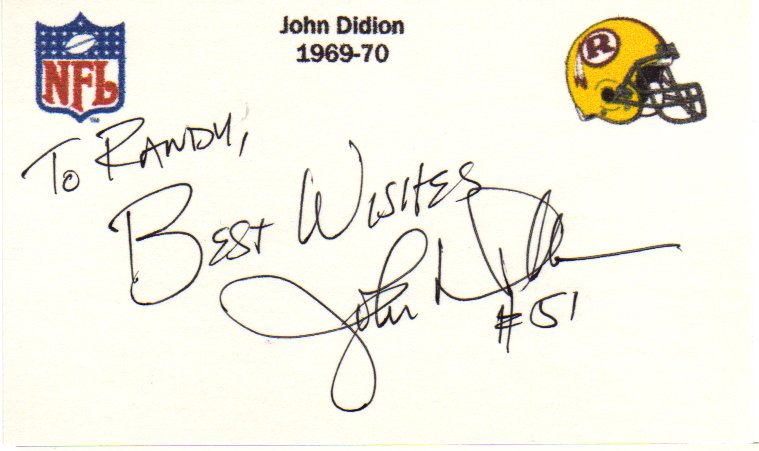 John Didion
1969-70
NFL
R
To Randy,
Best Wishes
John Didion
#51